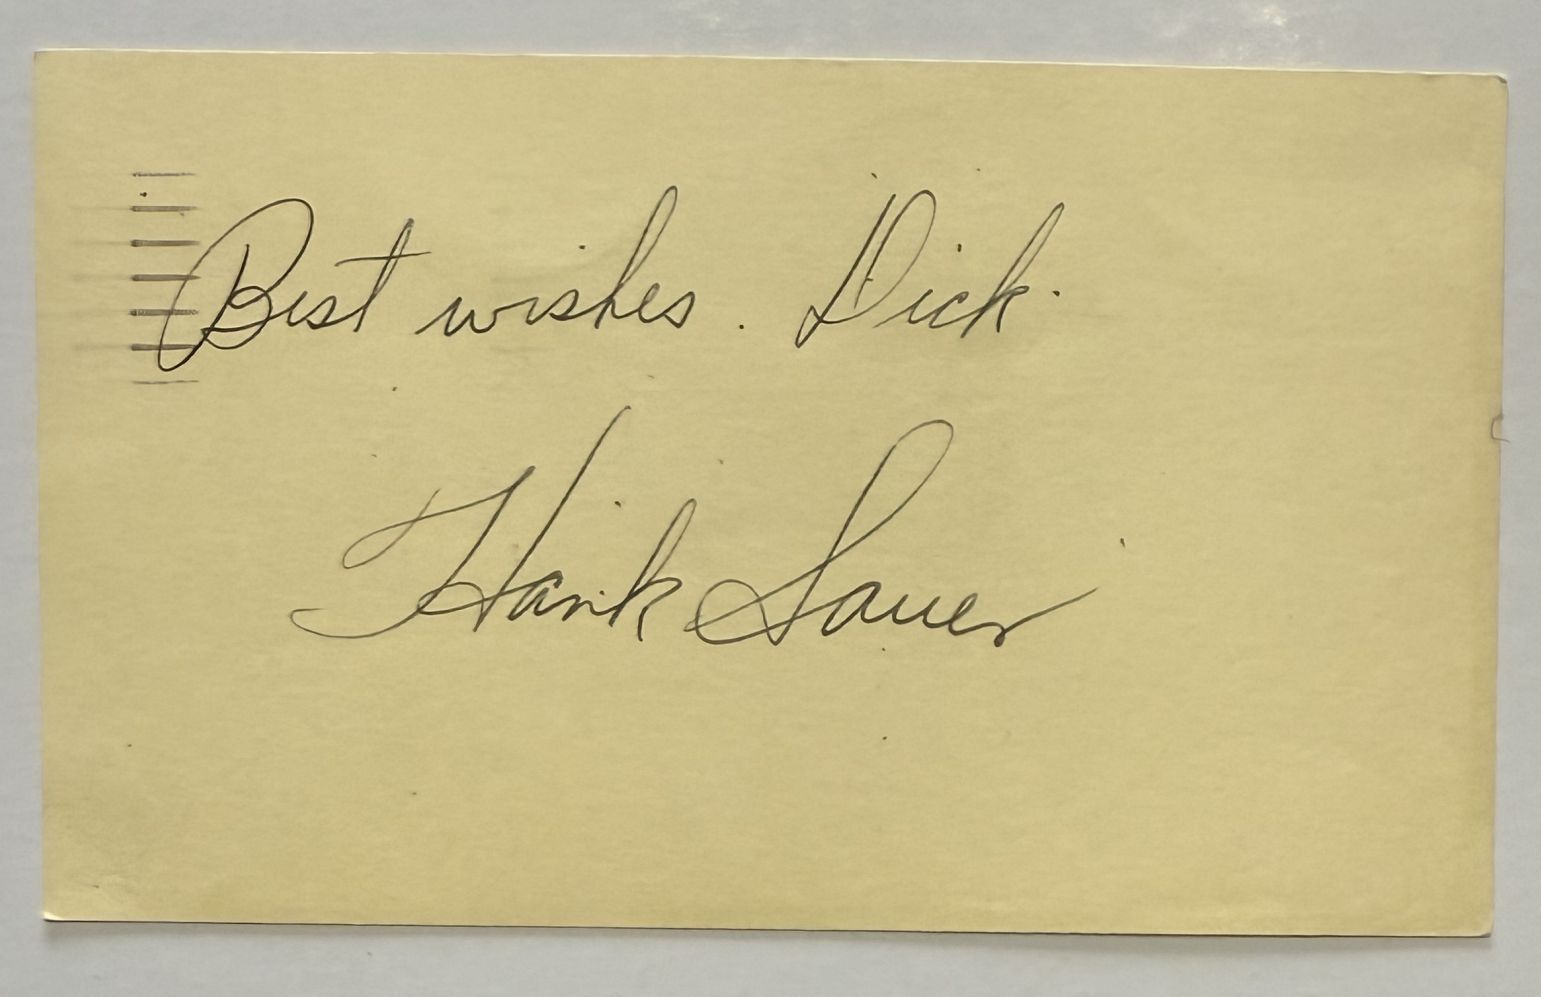 Best wishes. Dick.
Hank Sauer